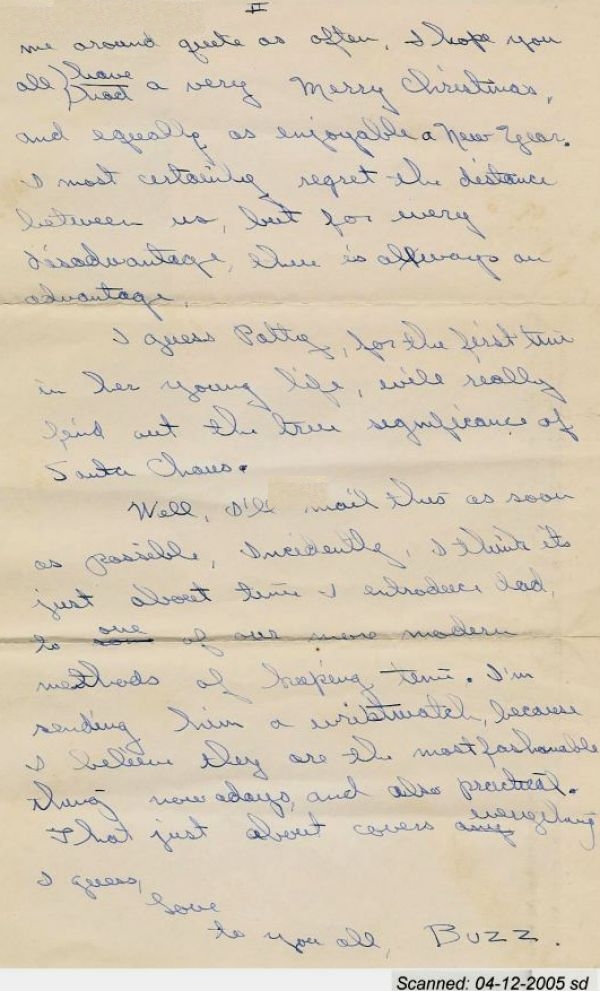 II
me around quite as often. I hope you
all have had a very Merry Christmas,
and equally as enjoyable a New Year.
I most certainly regret the distance
between us, but for every
disadvantage, there is always an
advantage.
I guess Patty, for the first time
in her young life, will really
find out the true significance of
Santa Claus.
Well, I'll mail this as soon
as possible, Incidently, I think its
just about time I introduce Dad,
to one of our more modern
methods of keeping time. I'm
sending him a wristwatch, because
I believe they are the most fashonable
thing now adays, and also practical.
That just about covers everything
I guess,
Love
to you all, BUZZ.
Scanned: 04-12-2005 sd